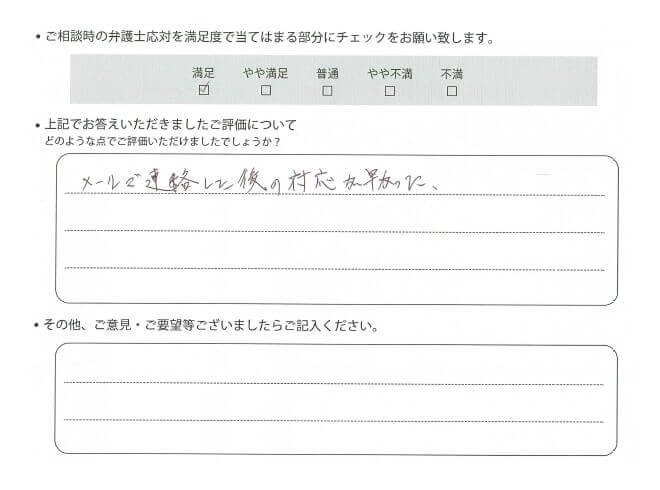 ・ご相談時の弁護士応対を満足度で当てはまる部分にチェックをお願い致します。
満足 やや満足 普通 やや不満 不満
☑ ☐ ☐ ☐ ☐
・上記でお答えいただきましたご評価について
どのような点でご評価いただけましたでしょうか？
メールで連絡した後の対応が早かった、
・その他、ご意見・ご要望等ございましたらご記入ください。